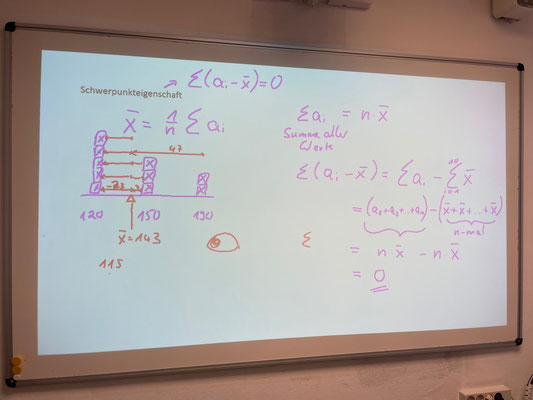 → Σ(aᵢ - x̄) = 0
Schwerpunkteigenschaft
x̄ = 1/n Σ aᵢ
47
-23
120 150 190
x̄ = 143
115
Σaᵢ = n·x̄
Summe aller
Werte
Σ(aᵢ - x̄) = Σaᵢ - Σ x̄
= (a₁+a₂+...+aₙ) - (x̄+x̄+...+x̄)
n-mal
Σ
= n·x̄ - n·x̄
= 0